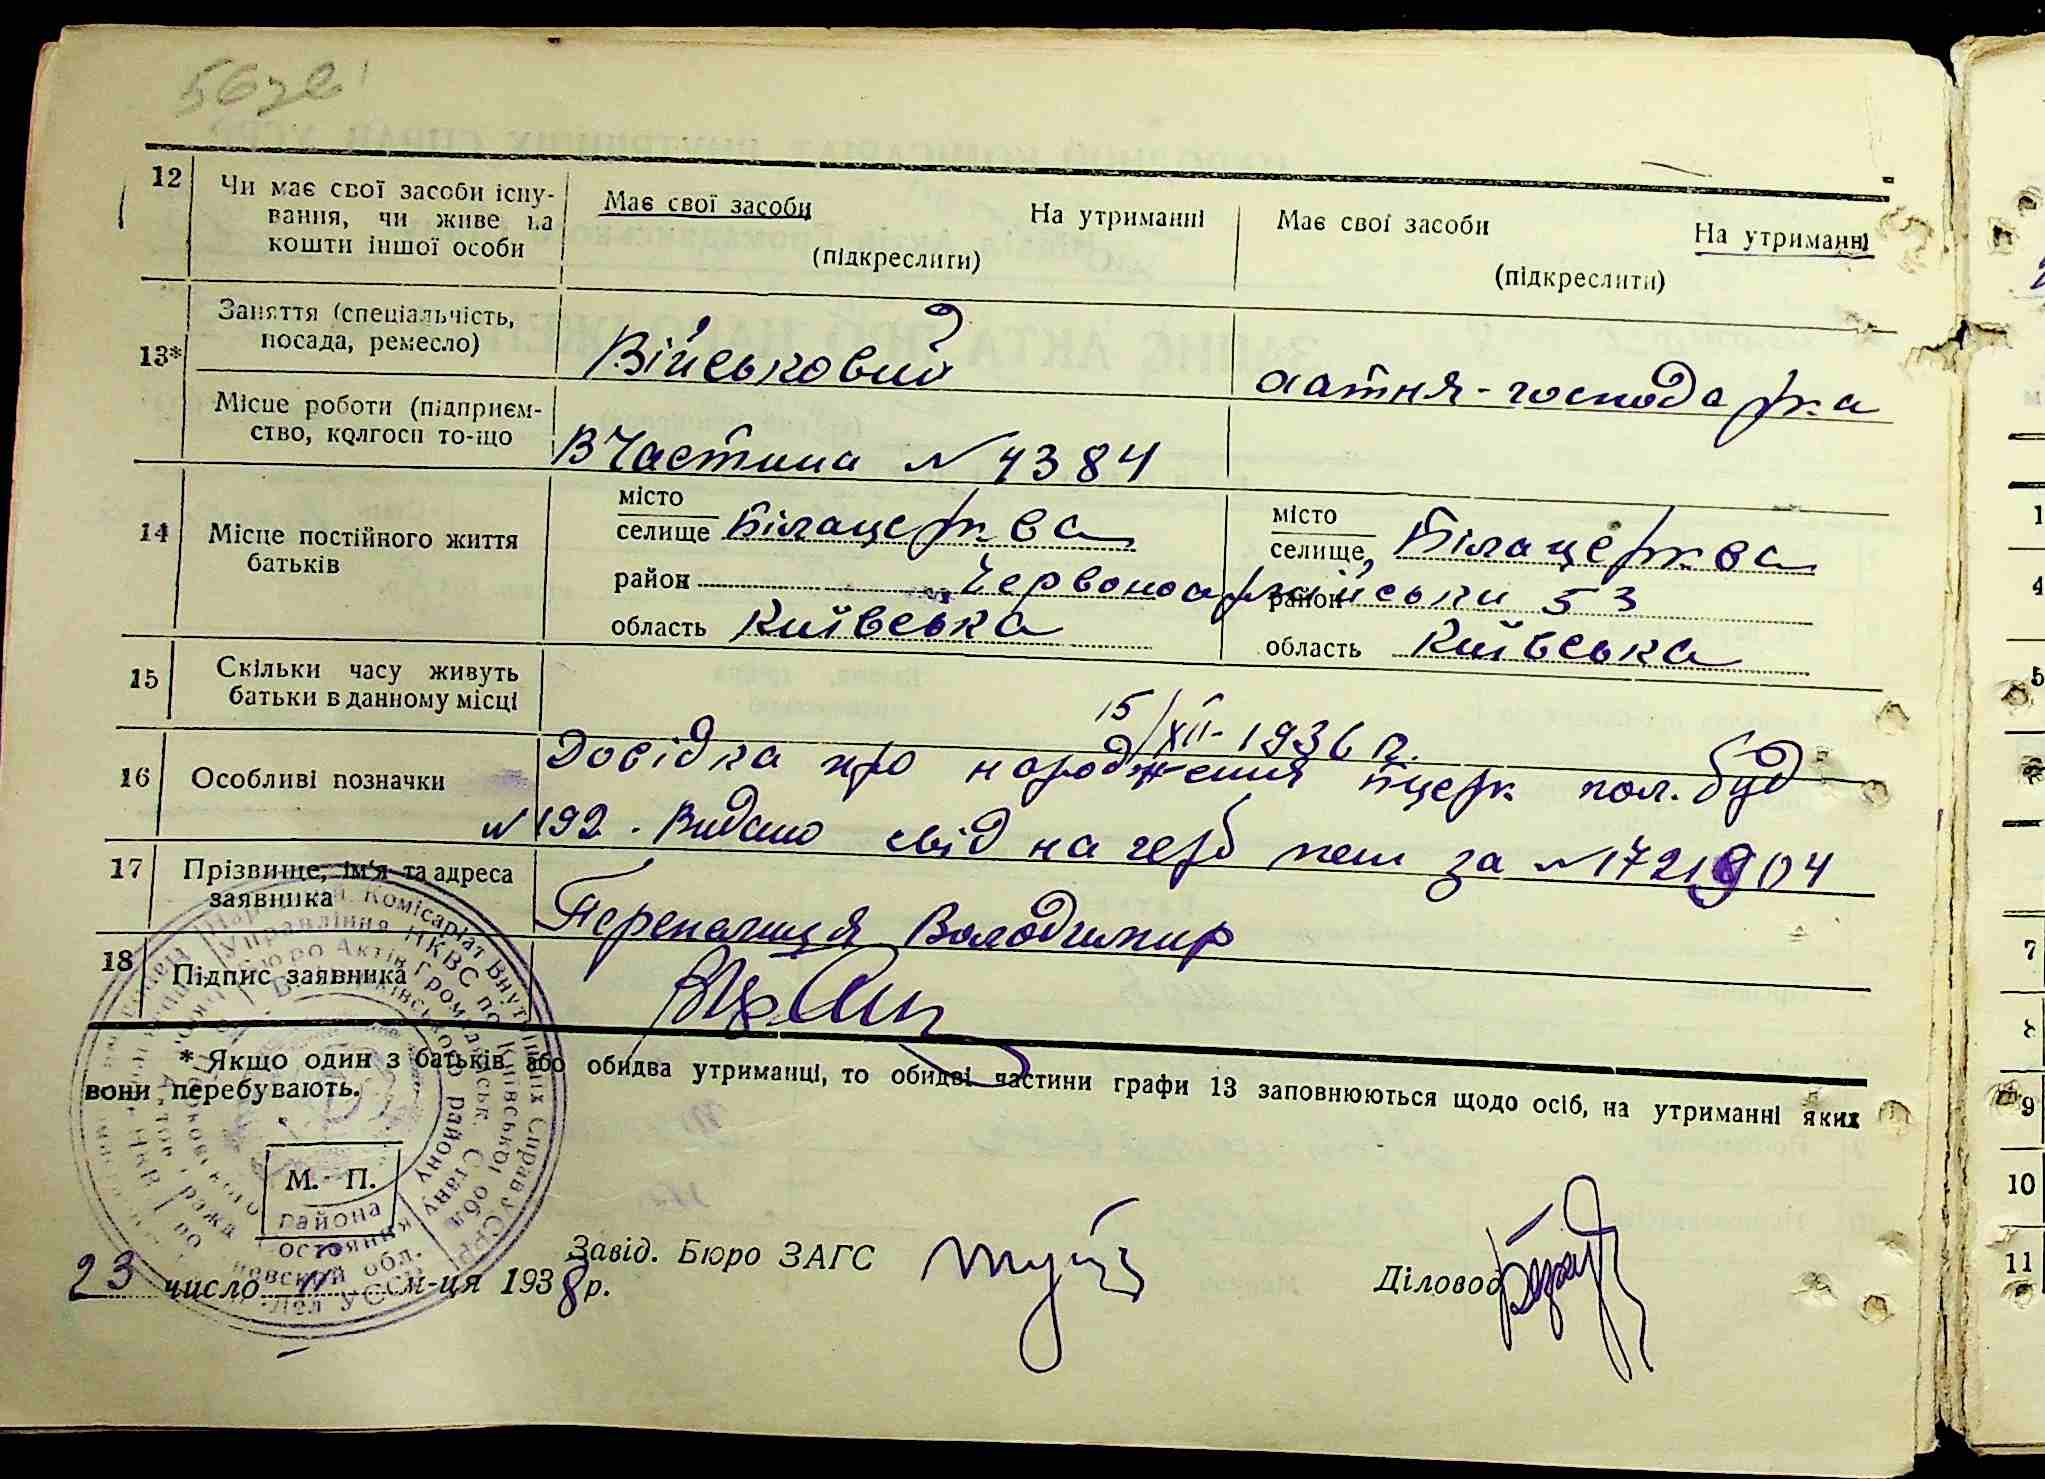 12
Чи має свої засоби існу-
вання, чи живе на
кошти іншої особи
Має свої засоби На утриманні
(підкреслити)
Має свої засоби На утриманні
(підкреслити)
13*
Заняття (спеціальність,
посада, ремесло)
Військовий
хатня-господарка
Місце роботи (підприєм-
ство, колгосп то-що
В Частина № 4384
14
Місце постійного життя
батьків
місто
селище Білацерква
район Червоноармійськи 53
область Київська
місто
селище, Білацерква
район
область Київська
15
Скільки часу живуть
батьки в данному місці
15/XII-1936 р.
16
Особливі позначки
Довідка про народження Бцерк пол. буд
№ 192. Видано свід на герб пап за № 1721904
17
Прізвище, ім'я та адреса
заявника
Перепалиця Володимир
18
Підпис заявника
* Якщо один з батьків або обидва утриманці, то обидві частини графи 13 заповнюються щодо осіб, на утриманні яких
вони перебувають.
М. П.
23 число 11 м-ця 1938 р.
Завід. Бюро ЗАГС
Діловод
Народній Комісаріат Внутрішніх Справ УСРР
Управління НКВС по Київській обл.
Бюро Актів Громадськ. Стану
району
района
УССР
1
4
5
7
8
9
10
11